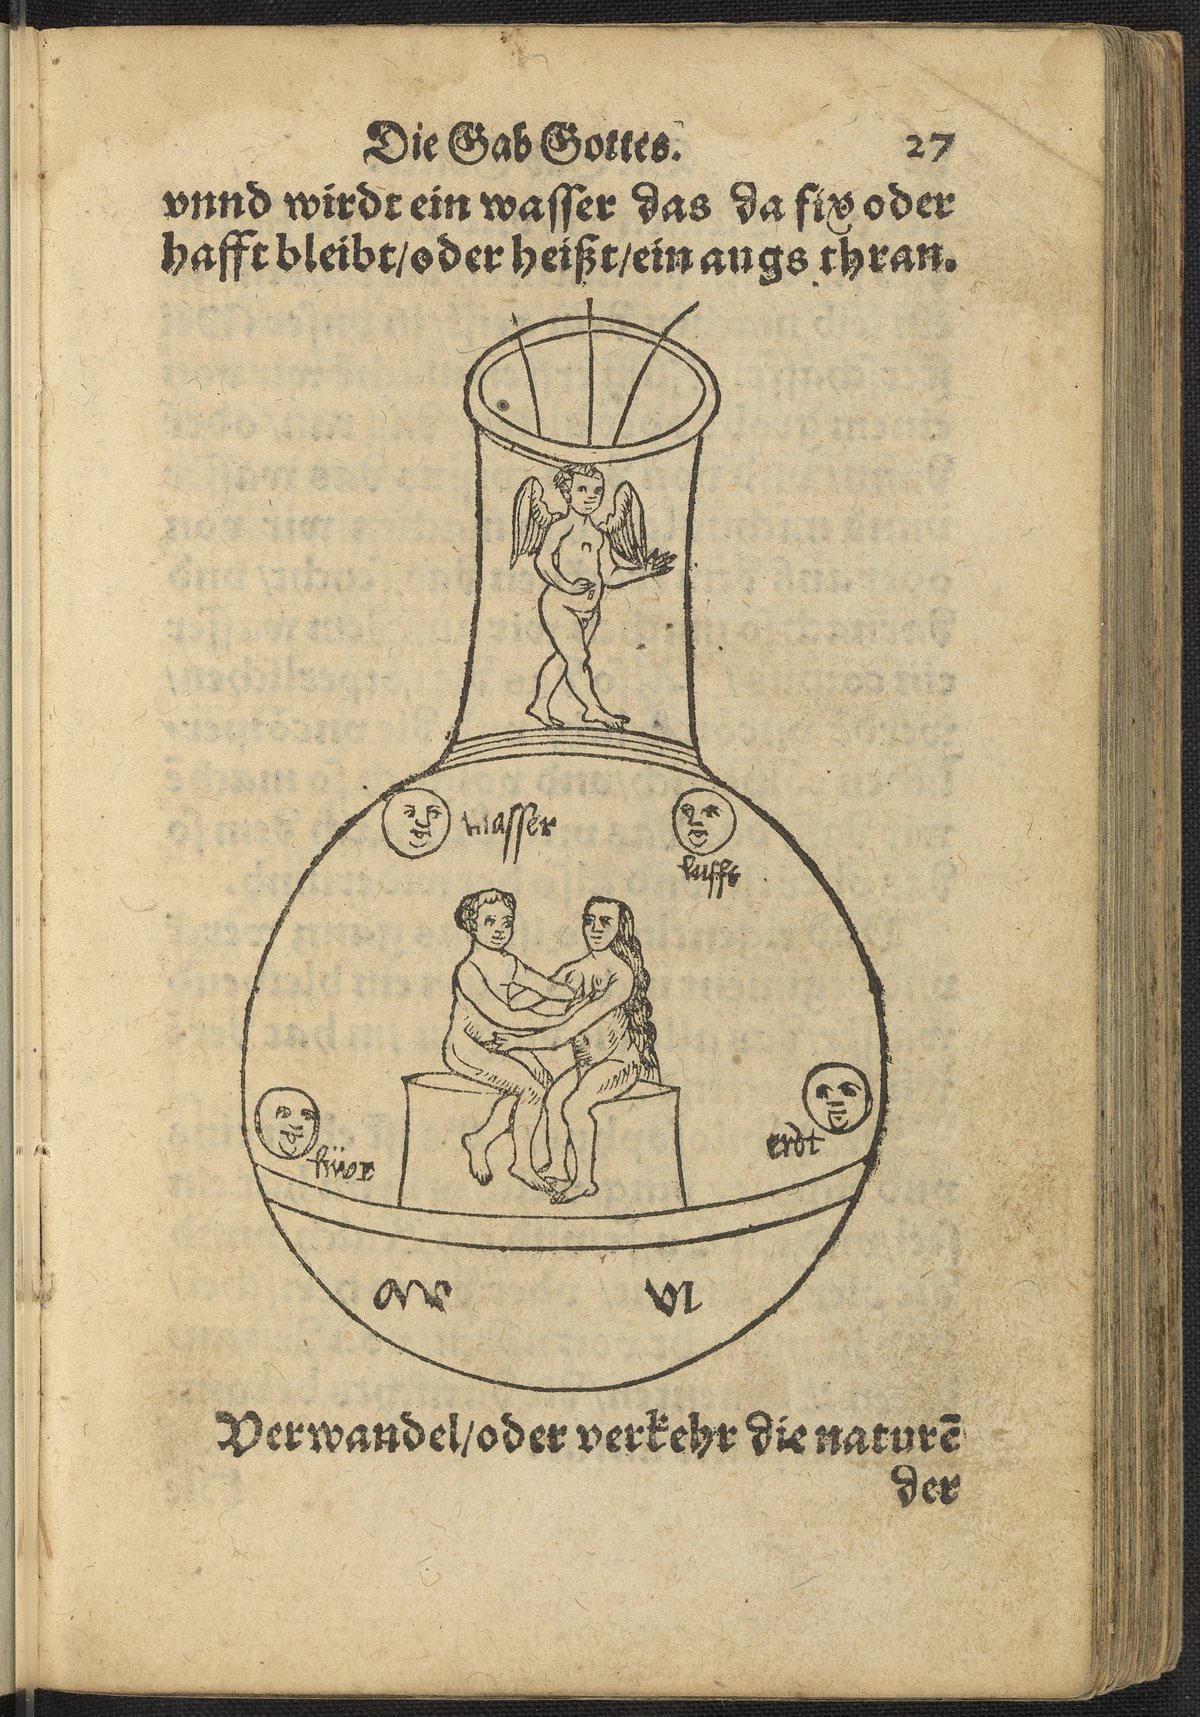 Die Gab Gottes. 27
vnnd wirdt ein wasser das da fix oder
hafft bleibt/oder heißt/ein augs thran.
wasser
lufft
erdt
Verwandel/oder verkehr die naturē
der